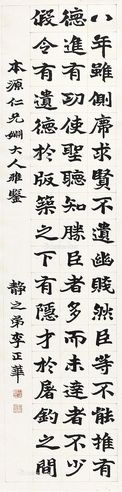 八年雖側席求賢不遺幽賤然臣等不能推有
德進有功使聖聽知勝臣者多而未達者不少
假令有遺德於版築之下有隱才於屠釣之間
本源仁兄婣大人雅鑒
靜之弟李正華